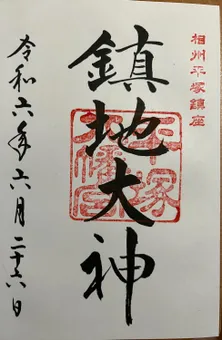 相州平塚鎮座
鎮地大神
平塚八幡宮
令和六年六月二十六日